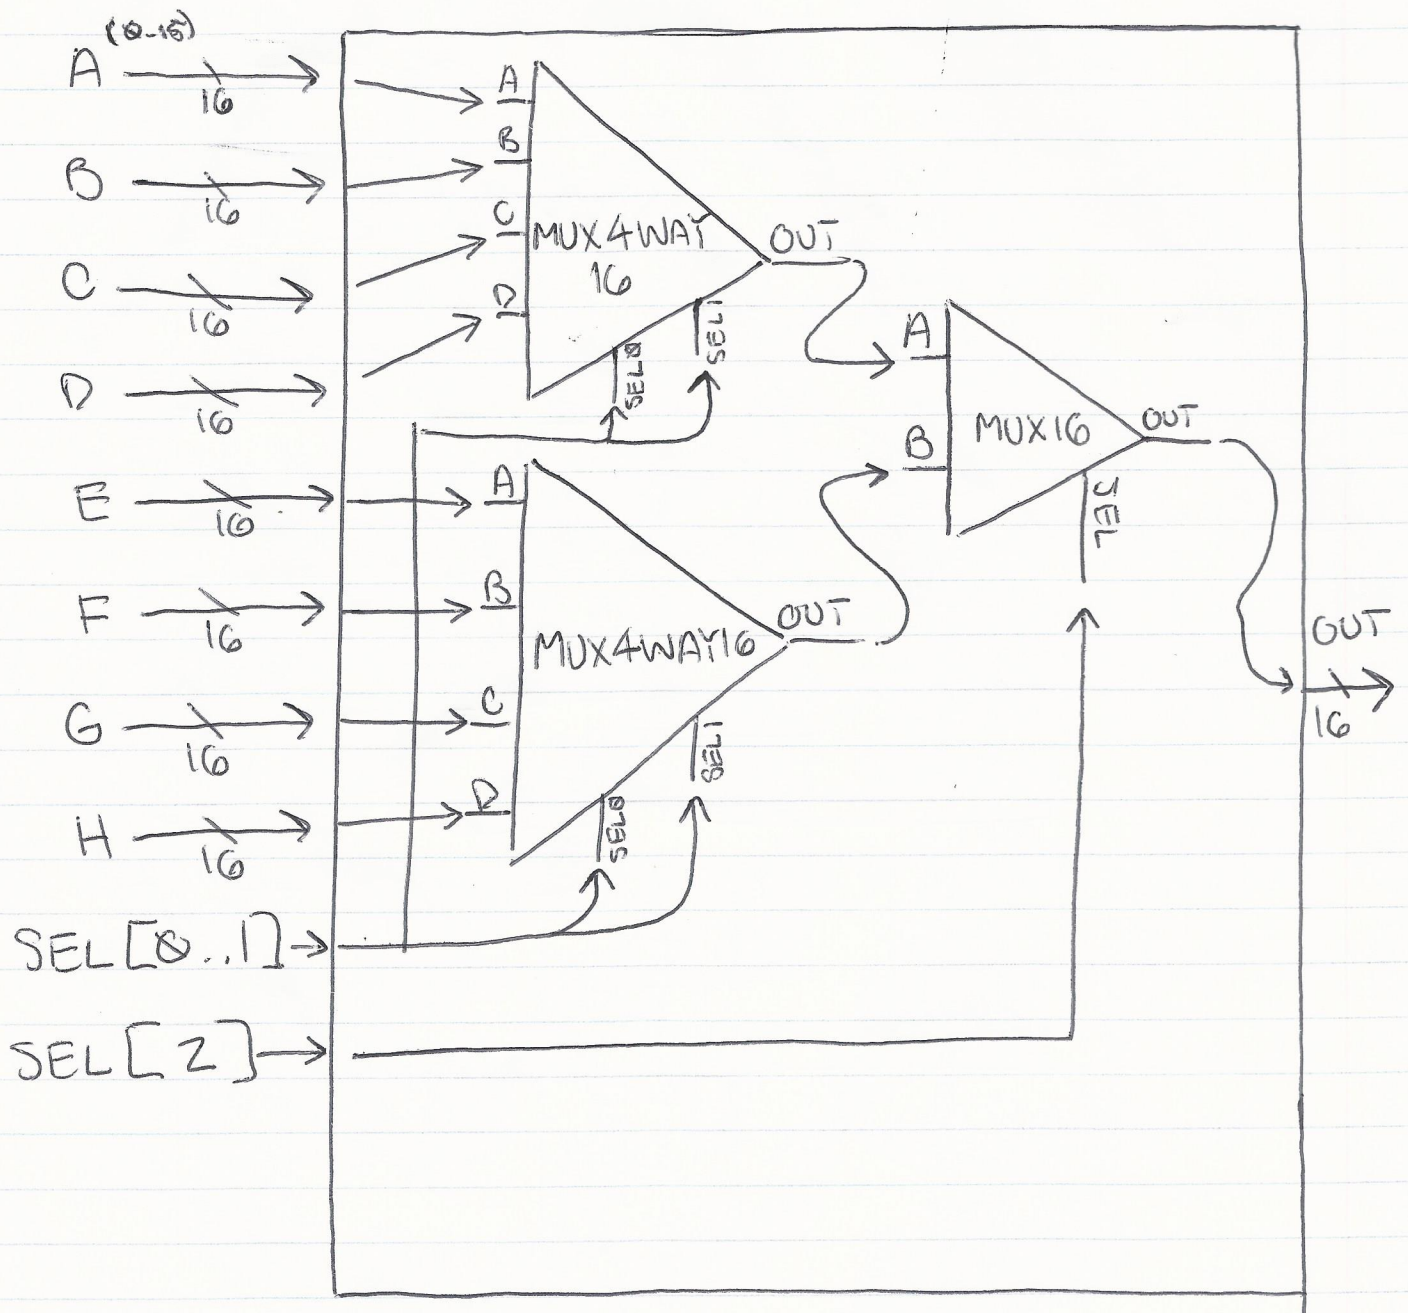 (0-15)
A
16
B
16
C
16
D
16
E
16
F
16
G
16
H
16
SEL[0..1]
SEL[2]
A
B
C
D
MUX4WAY
16
SEL0
SEL1
OUT
A
B
C
D
MUX4WAY16
SEL0
SEL1
OUT
A
B
MUX16
SEL
OUT
OUT
16